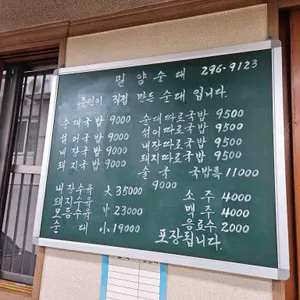 밀양순대 296-9123
주인이 직접 만든 순대 입니다.
순대국밥 9000 순대따로국밥 9500
섞어국밥 9000 섞어따로국밥 9500
내장국밥 9000 내장따로국밥 9500
돼지국밥 9000 돼지따로국밥 9500
술국 9000 국밥특 11000
내장수육 大 35000
돼지수육
모듬수육 中 23000
순대 小 19000
소주 4000
맥주 4000
음료수 2000
포장됩니다.